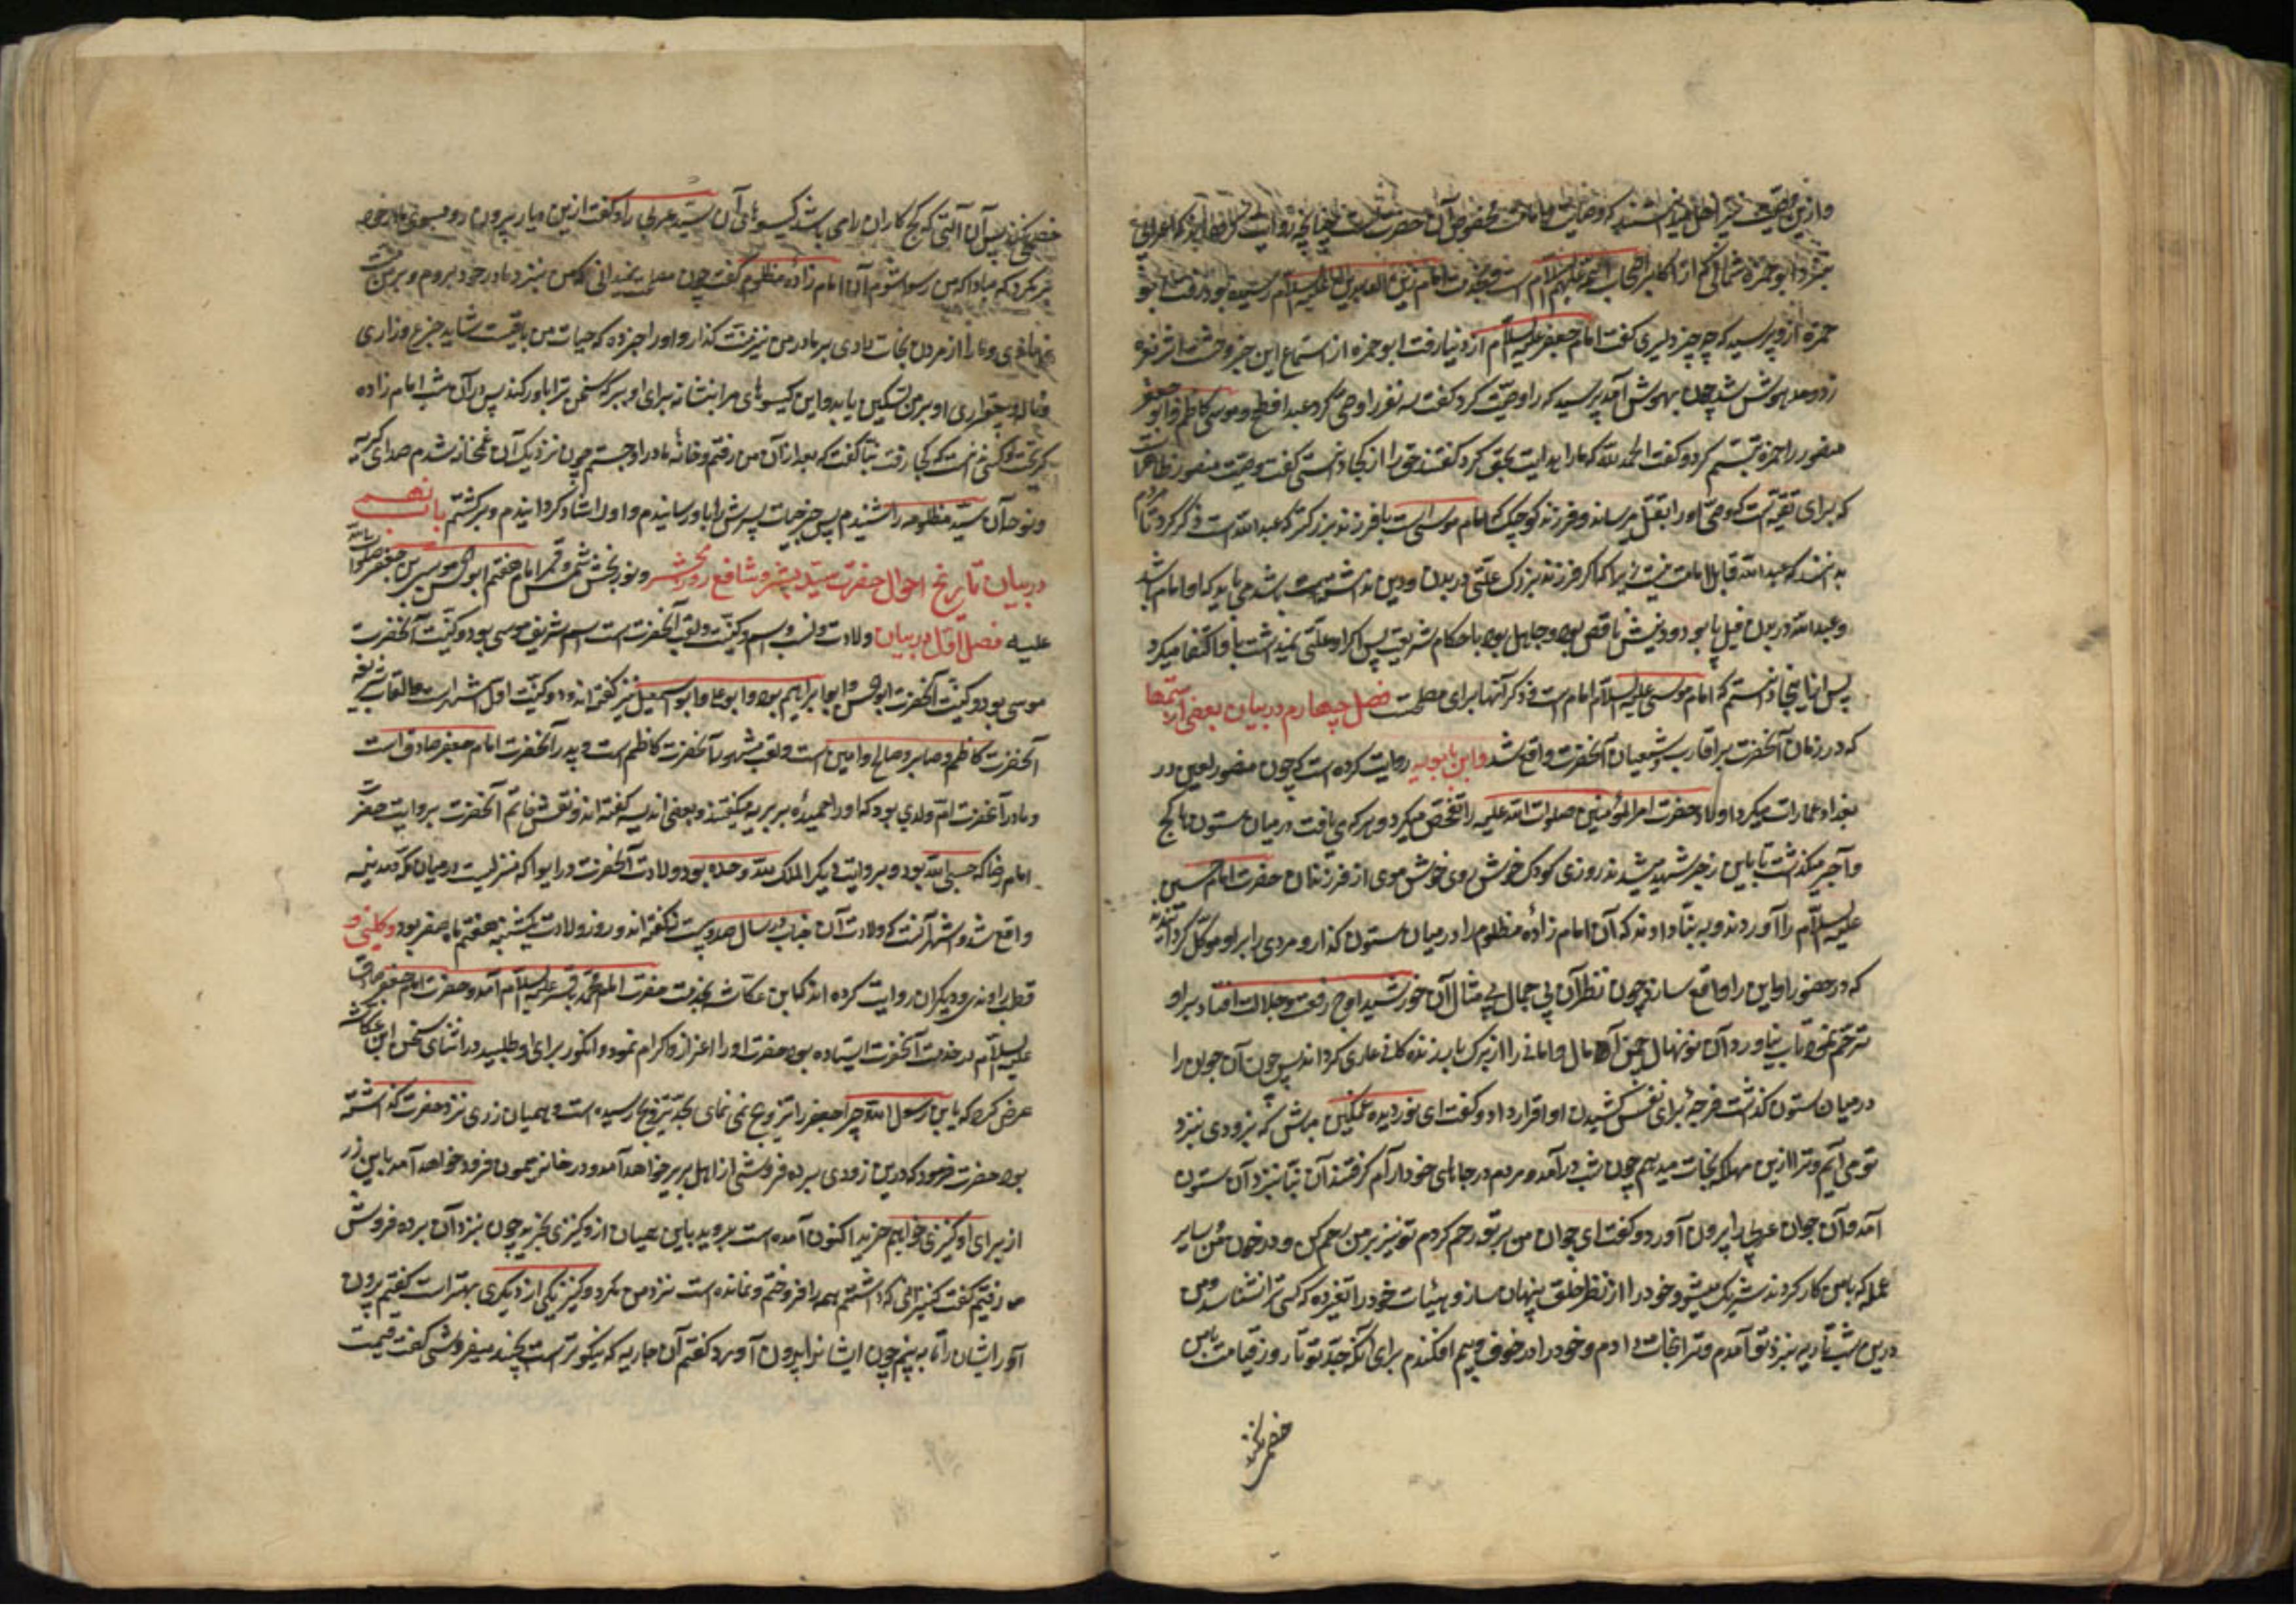 وازین وصیت نیز اهل علم دانستند که وصایت و امامت مخصوص آن حضرت است چنانچه روایت کرده‌اند که اعرابی
بنزد ابوحمزه شمالی که از اکابر اصحاب ائمه علیهم السلام است و بخدمت امام زین العابدین علیه السلام رسیده بود رفت ابو
حمزه ازو پرسید که چه چیز دیدی گفت امام جعفر علیه السلام از دنیا رفت ابوحمزه از استماع این خبر وحشت اثر نعره
زد و مدهوش شد چون بهوش آمد پرسید که را وصیت کرد گفت سه نفر را وصی کرد عبد افطح و موسی کاظم و ابو جعفر
منصور را حمزه تبسم کرد و گفت الحمد لله که ما را هدایت بحق کرد گفتند حق را از کجا دانستی گفت وصیت منصور ظاهرست
که برای تقیه است که وصی او را بقتل نرساند و فرزند کوچک که امام موسی است با فرزند بزرکتر که عبدالله است ذکر کرد تا مردم
بدانند که عبدالله قابل امامت نیست زیرا که اکر فرزند بزرک علتی در بدن و دین نداشته باشد می باید که او امام باشد
و عبدالله در بدن فیل پا بود و دینش ناقص بود و جاهل بود باحکام شریعت پس اکر او علتی نمیداشت باو اکتفا میکرد
پس از اینجا دانستم که امام موسی علیه السلام امام است و ذکر آنها برای مصلحت فصل چهارم در بیان بعضی از ستمها
که در زمان آنحضرت بر اقارب و شیعیان آنحضرت واقع شد و ابن بابویه روایت کرده است که چون منصور لعین در
بغداد عمارات میکرد اولاد حضرت امیرالمؤمنین صلوات الله علیه را تفحص میکرد و هر که می یافت در میان ستون ها کج
و آجر میکذشت تا باین زجر شهید میشدند روزی کودک خوش روی خوش موی از فرزندان حضرت امام حسین
علیه السلام را آوردند و به بنا دادند که آن امام زاده مظلوم را در میان ستون کذارد و مردی برابر او موکل کردانید
که در حضور او این را واقع سازد چون نظر آن بی جمال بی مثال آن خورشید اوج رفعت و جلالت افتاد بر او
ترحم نمود تاب نیاورد آن نونهال چمن آمال و امانی را از برک بار زندکانی عاری کرداند پس چون آن جوان را
در میان ستون کذاشت فرجه برای نفس کشیدن او قرار داد و گفت ای نور دیده غمکین مباش که بزودی بنزد
تو می آیم و ترا ازین مهلکه نجات میدهم چون شب در آمد و مردم در جاهای خود آرام کرفتند آن بنا بنزد آن ستون
آمد و آن جوان عربی را بیرون آورد و گفت ای جوان من بر تو رحم کردم تو نیز بر من رحم کن و در خون من و سایر
عمله که با من کار کردند شریک مشو و خود را از نظر خلق پنهان ساز و هیئات خود را تغیر ده که کسی ترا نشناسد و من
درین شب تار به نزد تو آمدم و ترا نجات دادم و خود را در خوف و بیم افکندم برای آنکه جد تو تا روز قیامت با من
خصمی نکند
خصمی نکند پس آن آلتی که کج کاران را می باشد کیسوهای آن سید عربی را و گفت ازین دیار بیرون رو و بسوی مادر خود
بر مکرد که مبادا که من رسوا شوم آن امام زاده مظلوم گفت چون مصلحت نمیدانی که من بنزد مادر خود بروم و بر من منت
نهادی و مرا از مردن نجات دادی بر مادر من نیز منت کذار و او را خبر ده که حیات من باقیست شاید جزع و زاری
و ناله و بیقراری او بر من تسکین یابد و این کیسوهای مرا نشانه برای او ببر که سخن ترا باور کند پس در آن شب امام زاده
کریخت و کسی ندانست که بکجا رفت بنا گفت که بعد از آن من رفتم و خانه مادر او جستم چون نزدیک آن غمخانه شدم صدای کریه
و نوحه آن سیده مظلومه را شنیدم پس خبر حیات پسرش را باو رسانیدم و او را شاد کردانیدم و برکشتم باب نهم
در بیان تاریخ احوال حضرت سید بشر و شافع روز محشر و نور بخش شمس و قمر امام هفتم ابوالحسن موسی بن جعفر صلوات الله
علیه فصل اول در بیان ولادت و نسب و اسم و کنیت و لقب آنحضرت است اسم شریف موسی بود و کنیت آنحضرت
موسی بود و کنیت آنحضرت ابوالحسن و ابو ابراهیم بود و ابو علی و ابو اسمعیل نیز گفته اند و در کنیت اول اشهر است و القاب شریفه
آنحضرت کاظم و صابر و صالح و امین است و لقب مشهور آنحضرت کاظم است و پدر آنحضرت امام جعفر صادق است
و مادر آنحضرت ام ولدی بود که او را حمیده بربریه میکفتند و بعضی اندلسیه گفته اند و نقش خاتم آنحضرت بروایت حضرت
امام رضا که حسبی الله بود و بروایت دیکر الملک لله وحده بود و ولادت آنحضرت در ابوا که منزلیست در میان مکه و مدینه
واقع شد و اشهر آنست که ولادت آن جناب در سال صد و بیست گفته اند و روز ولادت یکشنبه هفتم ماه صفر بود و کلینی و
قطب راوندی و دیکران روایت کرده اند که ابن عکاشه بخدمت حضرت امام محمد باقر علیه السلام آمد و حضرت امام جعفر صادق
علیه السلام در خدمت آنحضرت ایستاده بود حضرت او را اعزاز و اکرام نمود و انکور برای او طلبید در اثنای سخن ابن عکاشه
عرض کرد که یا بن رسول الله چرا جعفر را تزویج نمی نمای بحد تزویج رسیده است و همیان زری نزد حضرت کذاشته
بود حضرت فرمود که درین زودی برده فروشی از اهل بربر خواهد آمد و در خانه میمون فرود خواهد آمد باین زر
از برای او کنیزی خواهیم خرید اکنون آمده است بروید باین همیان ازو کنیزی بخرید چون بنزد آن برده فروش
رفتیم گفت کنیزانی که داشتم همه را فروختم و نمانده است نزد من مکر دو کنیز یکی از دیکری بهتر است کفتیم بیرون
آور ایشان را تا به بینیم چون ایشانرا بیرون آورد کفتیم آن جاریه که نیکوتر است بچند میفروشی گفت قیمت